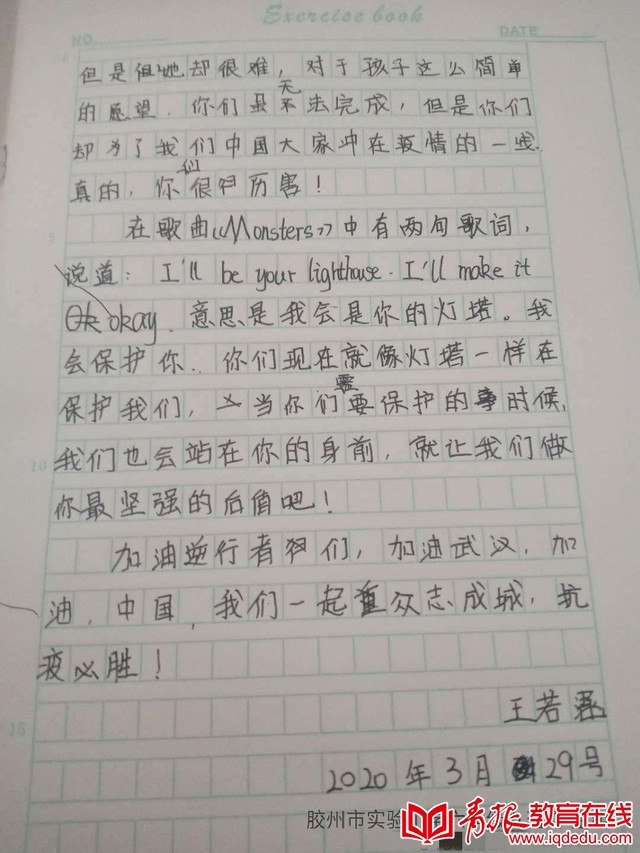 Exercise book
NO.
DATE
但是但她却很难，对于孩子这么简单
的愿望．你们虽无法完成，但是你们
却为了我们中国大家冲在疫情的一线．
真的，你们很厉害！
5
在歌曲《Monsters》中有两句歌词，
说道：I'll be your lighthouse. I'll make it
okay．意思是我会是你的灯塔。我
会保护你．你们现在就像灯塔一样在
保护我们，当你们需要保护的时候，
10
我们也会站在你的身前，就让我们做
你最坚强的后盾吧！
加油逆行者们，加油武汉，加
油，中国，我们一起众志成城，抗
疫必胜！
15
王若
2020年3月29号
胶州市实验
青报教育在线
www.iqdedu.com